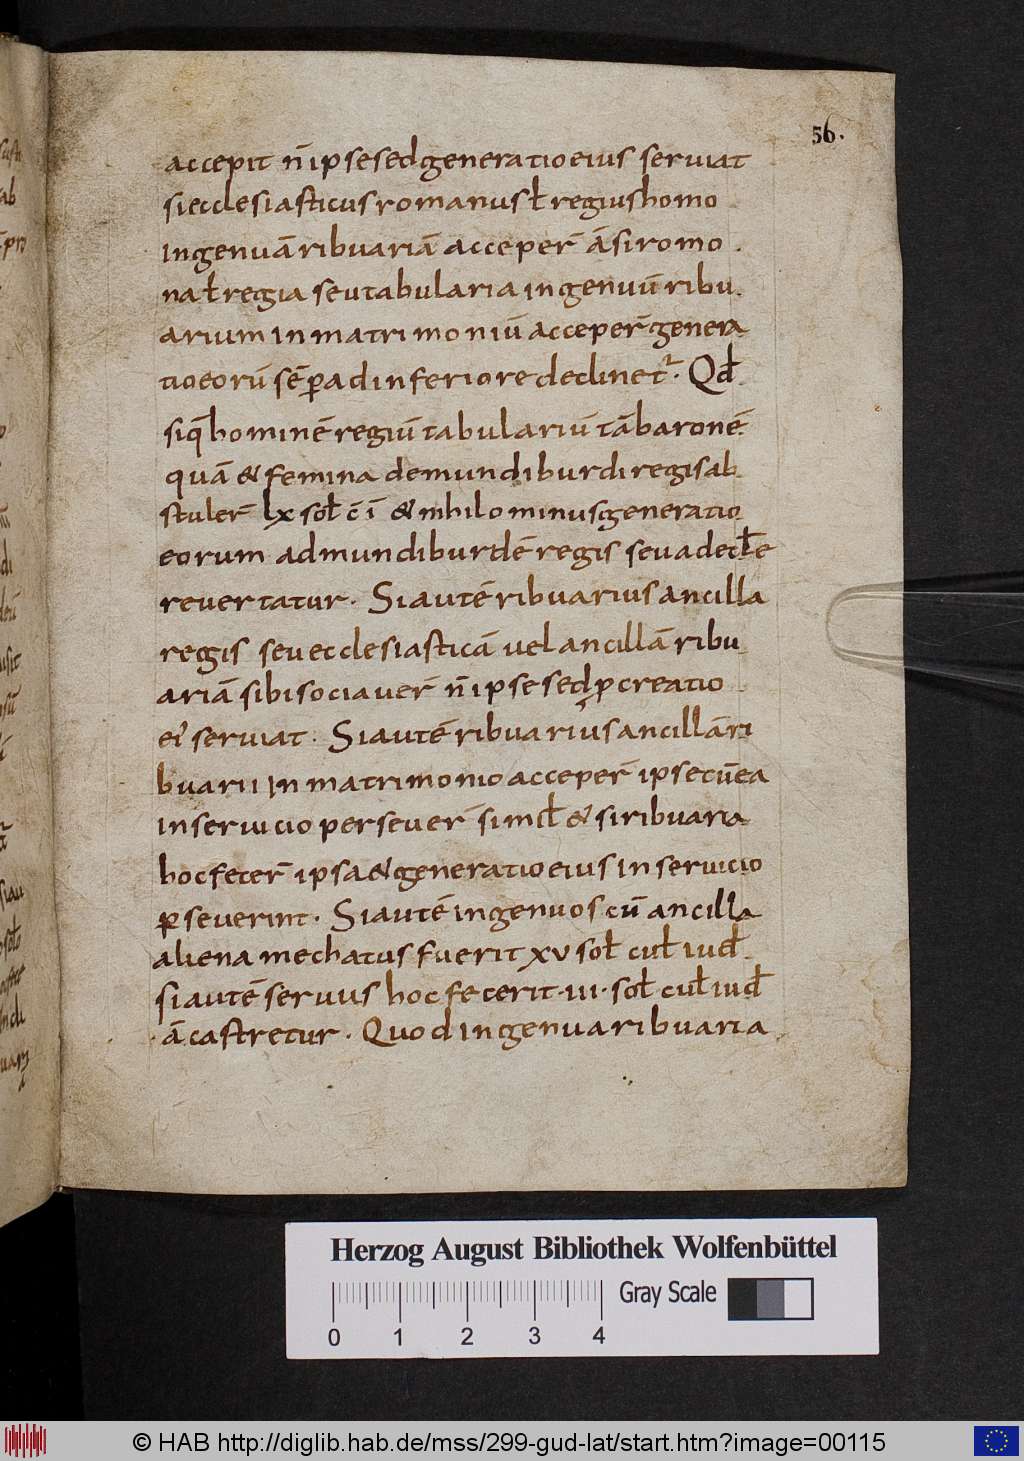 56.
accepit n̄ ipse sed generatio eius serviat
si ecclesiasticus romanus ł regius homo
ingenuā ribuariā acceper̄ ā si romo
na ł regia seu tabularia ingenuū ribu
arium in matrimoniū acceper̄ genera
tio eorū sēp ad inferiore declinet. Qđ
siq hominē regiū tabulariū tā baronē
quā & femina de mundiburdi regis ab
stuler̄ lx soł c̄ ī & nihilominus generatio
eorum ad mundiburdē regis seu ad eccłe
revertatur. Si autē ribuarius ancilla
regis seu ecclesiasticā vel ancillā ribu
ariā sibi sociaver̄ n̄ ipse sed pcreatio
ei' serviat. Si autē ribuarius ancillā ri
buarii in matrimonio acceper̄ ipse cū ea
in servicio persever̄ simł & si ribuaria
hoc fecer̄ ipsa & generatio eius in servicio
pseverint. Si autē ingenuos cū ancilla
aliena mechatus fuerit xv soł cuł iuđ
si autē servus hoc fecerit. iii. soł cuł iuđ
ā castretur. Quod ingenua ribuaria
Herzog August Bibliothek Wolfenbüttel
Gray Scale
0 1 2 3 4
© HAB http://diglib.hab.de/mss/299-gud-lat/start.htm?image=00115